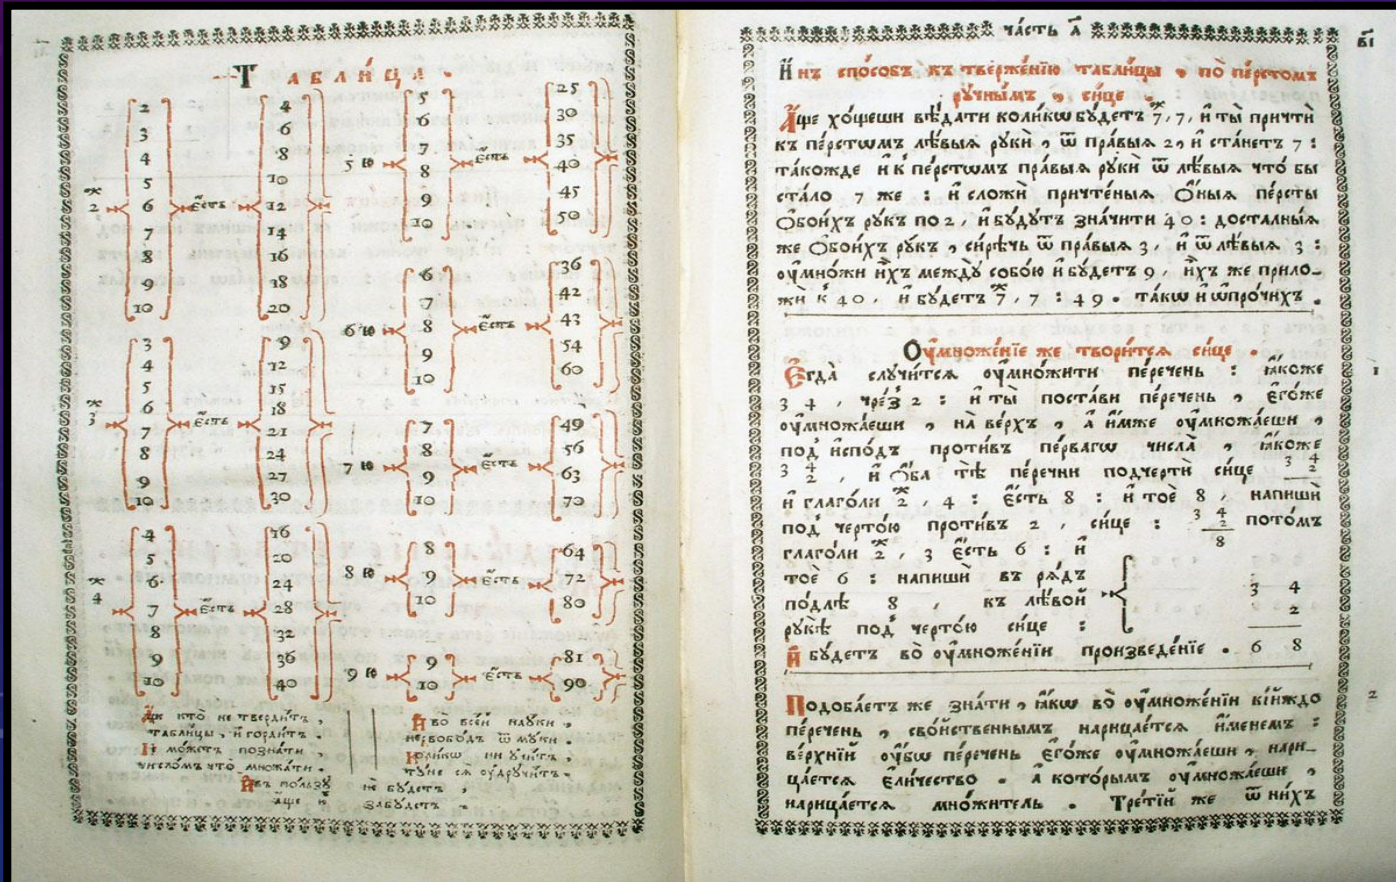 Таблица .
2ж
2
3
4
5
6
7
8
9
10
есть
4
6
8
10
12
14
16
18
20
3ж
3
4
5
6
7
8
9
10
есть
9
12
15
18
21
24
27
30
4ж
4
5
6
7
8
9
10
есть
16
20
24
28
32
36
40
5 ю
5
6
7
8
9
10
есть
25
30
35
40
45
50
6 ю
6
7
8
9
10
есть
36
42
43
54
60
7 ю
7
8
9
10
есть
49
56
63
70
8 ю
8
9
10
есть
64
72
80
9 ю
9
10
есть
81
90
Аще кто не твердитъ ,
таблицы , и гордитъ .
Не можетъ познати ,
числомъ что множати .
И во всей науки ,
несвободъ ѿ муки .
Колико ни учитъ ,
туне сѧ ѹдручитъ .
Ивъ ползу не будетъ ,
аще и забудетъ .
часть а҃
в҃і
И҆́нъ спо́собъ къ тверже́нїю табли́цы , по пе́рстомъ
рꙋ́чнымъ , си́це .
А҆́ще хо́щеши вѣ́дати коли́кѡ бꙋ́детъ 7ж, 7, и҆ ты̀ причтѝ
къ пе́рстѡмъ лѣ́выѧ рꙋкѝ , ѿ пра́выѧ 2 , и҆ ста́нетъ 7 :
та́кожде и҆ к̾ пе́рстѡмъ пра́выѧ рꙋкѝ ѿ лѣ́выѧ что бы
ста́ло 7 же : и҆ сложѝ причте́ныѧ ѻ҆́ныѧ пе́рсты
ѻ҆бои́хъ рꙋ́къ по 2 , и҆ бꙋ́дꙋтъ зна́чити 40 : доста́лныѧ
же ѻ҆бои́хъ рꙋ́къ , си́рѣчь ѿ пра́выѧ 3 , и҆ ѿ лѣ́выѧ 3 :
ᲂу҆мно́жи и҆́хъ междꙋ̀ собо́ю и҆ бꙋ́детъ 9 , и҆́хъ же прило-
жѝ к̾ 40 , и҆ бꙋ́детъ 7ж, 7 : 49 . та́кѡ и҆ ѡ҆ про́чихъ .
Оу҆множе́нїе же твори́тсѧ си́це .
Е҆гда̀ слꙋчи́тсѧ ᲂу҆мно́жити пе́речень : ꙗ҆́коже
1
3 4 , чре́з̾ 2 : и҆ ты̀ поста́ви пе́речень , є҆го́же
ᲂу҆множа́еши , на ве́рхъ , а҆ и҆́мже ᲂу҆множа́еши ,
под̾ и҆́сподъ проти́въ пе́рвагѡ числа̀ , ꙗ҆́коже
3 4 2 , и҆ ѻ҆́ба тѣ̀ пе́речни подчертѝ си́це 3 4 2
и҆ глаго́ли 2ж , 4 : є҆́сть 8 : и҆ тоѐ 8 , напишѝ
под̾ черто́ю проти́въ 2 , си́це : 3 4 2 8 пото́мъ
глаго́ли 2ж , 3 є҆́сть 6 : и҆
тоѐ 6 : напишѝ въ рѧ́дъ
по́длѣ 8 , къ лѣ́вой
рꙋкѣ̀ под̾ черто́ю си́це :
3 4
2
И҆ бꙋ́детъ во ᲂу҆множе́нїи произведе́нїе . 6 8
Подоба́етъ же зна́ти , ꙗ҆́кѡ во ᲂу҆множе́нїи кі́йждо
2
пе́речень , сво́йственнымъ нарица́етсѧ и҆́менемъ :
ве́рхнїй ᲂу҆́бѡ пе́речень є҆го́же ᲂу҆множа́еши , нари-
ца́етсѧ є҆ли́чество . а҆ кото́рымъ ᲂу҆множа́еши ,
нарица́етсѧ мно́житель . Тре́тїй же ѿ ни́хъ